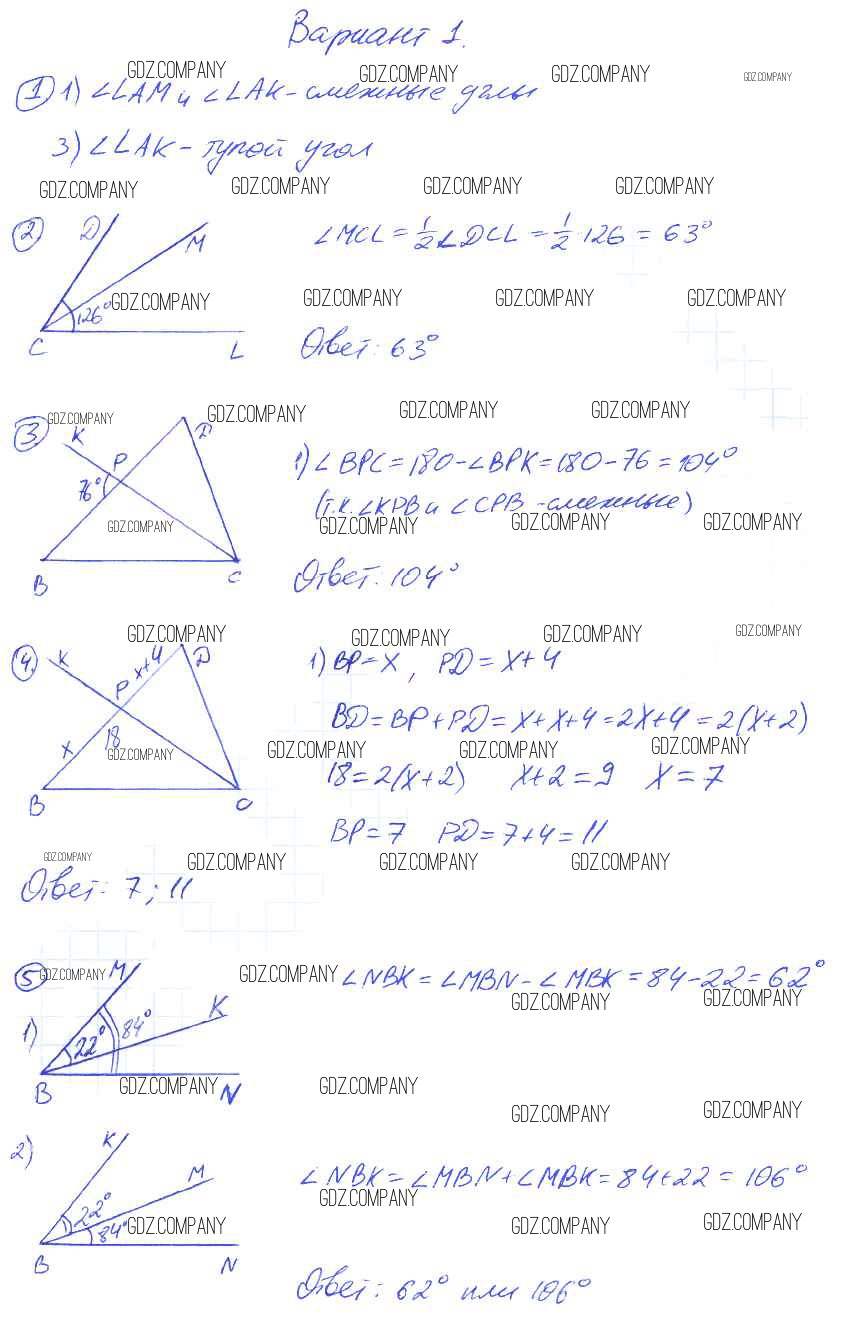 Вариант 1.
GDZ.COMPANY GDZ.COMPANY GDZ.COMPANY GDZ.COMPANY
① 1) ∠LAM и ∠LAK - смежные углы
3) ∠LAK - тупой угол
GDZ.COMPANY GDZ.COMPANY GDZ.COMPANY GDZ.COMPANY
② D M ∠MCL = 1/2 ∠DCL = 1/2 · 126 = 63°
GDZ.COMPANY GDZ.COMPANY GDZ.COMPANY GDZ.COMPANY
126°
C L Ответ: 63°
GDZ.COMPANY GDZ.COMPANY GDZ.COMPANY GDZ.COMPANY
③ K P D 1) ∠BPC = 180 - ∠BPK = 180 - 76 = 104°
76° (т.к. ∠KPB и ∠CPB - смежные)
GDZ.COMPANY GDZ.COMPANY GDZ.COMPANY GDZ.COMPANY
B C Ответ: 104°
GDZ.COMPANY GDZ.COMPANY GDZ.COMPANY GDZ.COMPANY
④ K P x+4 D 1) BP = x, PD = x + 4
x 18 BD = BP + PD = x + x + 4 = 2x + 4 = 2(x + 2)
GDZ.COMPANY GDZ.COMPANY GDZ.COMPANY GDZ.COMPANY
B C 18 = 2(x + 2) x + 2 = 9 x = 7
BP = 7 PD = 7 + 4 = 11
GDZ.COMPANY GDZ.COMPANY GDZ.COMPANY GDZ.COMPANY
Ответ: 7; 11
⑤ GDZ.COMPANY M GDZ.COMPANY ∠NBK = ∠MBN - ∠MBK = 84 - 22 = 62°
GDZ.COMPANY GDZ.COMPANY
1) 22° 84° K
B N
GDZ.COMPANY GDZ.COMPANY GDZ.COMPANY GDZ.COMPANY
2) K M ∠NBK = ∠MBN + ∠MBK = 84 + 22 = 106°
GDZ.COMPANY
22° 84°
GDZ.COMPANY GDZ.COMPANY GDZ.COMPANY
B N
Ответ: 62° или 106°